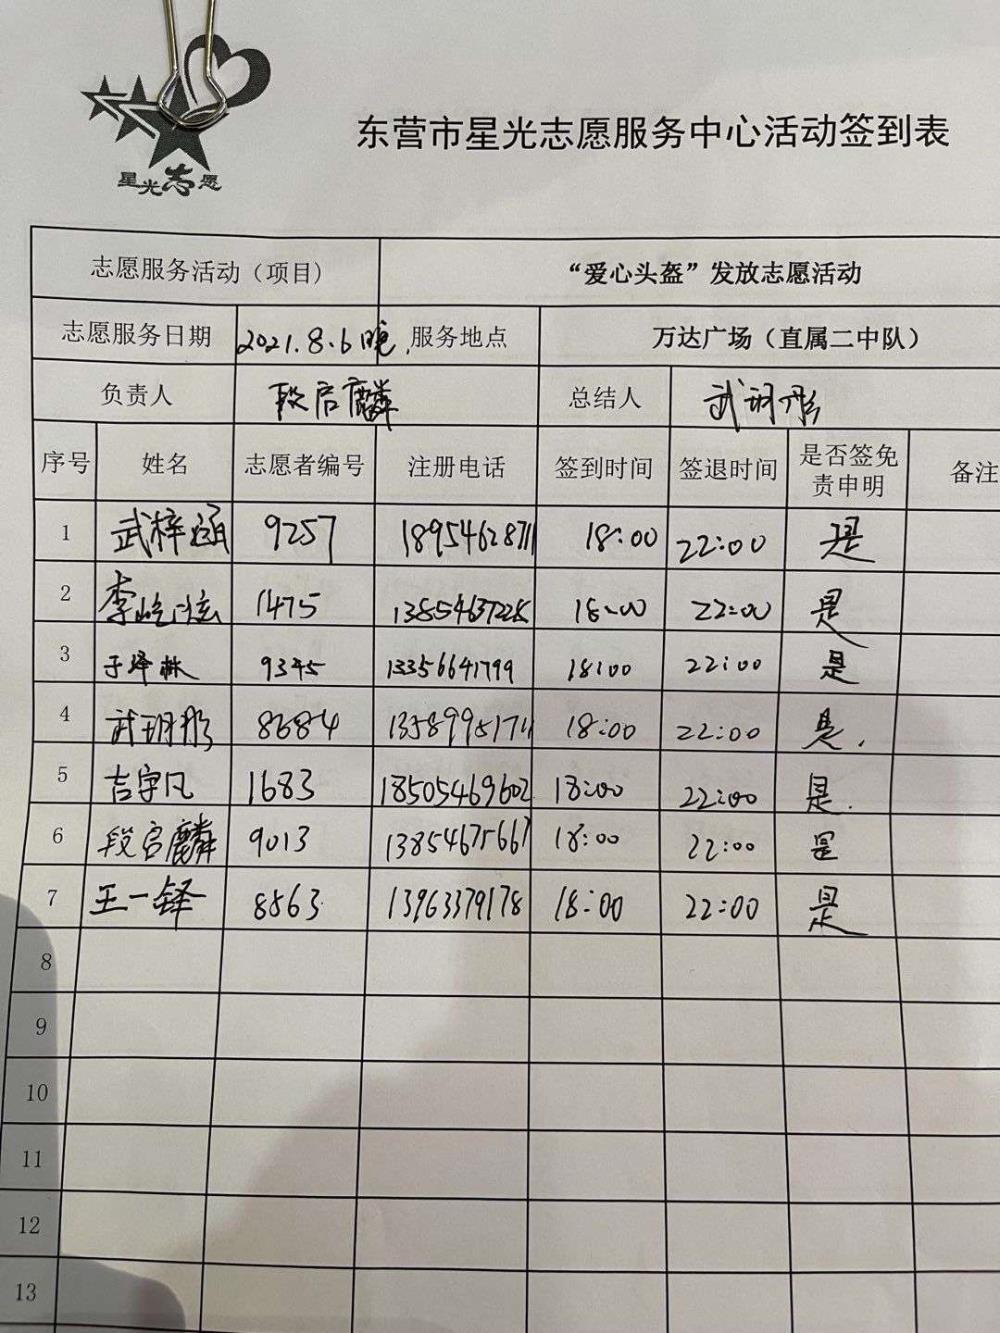 星光志愿
东营市星光志愿服务中心活动签到表
志愿服务活动（项目） “爱心头盔”发放志愿活动
志愿服务日期 2021.8.6晚. 服务地点 万达广场（直属二中队）
负责人 段启麟 总结人 武玥彤
序号 姓名 志愿者编号 注册电话 签到时间 签退时间 是否签免责申明 备注
1 武梓涵 9257 18954628711 18:00 22:00 是
2 李屹泫 1475 13854637228 18:00 22:00 是
3 于泽林 9345 13356641799 18:00 22:00 是
4 武玥彤 8684 18:00 22:00 是.
5 吉宇凡 1683 18505469602 18:00 22:00 是.
6 段启麟 9013 13854675667 18:00 22:00 是
7 王一铎 8563 13963379178 18:00 22:00 是
8
9
10
11
12
13